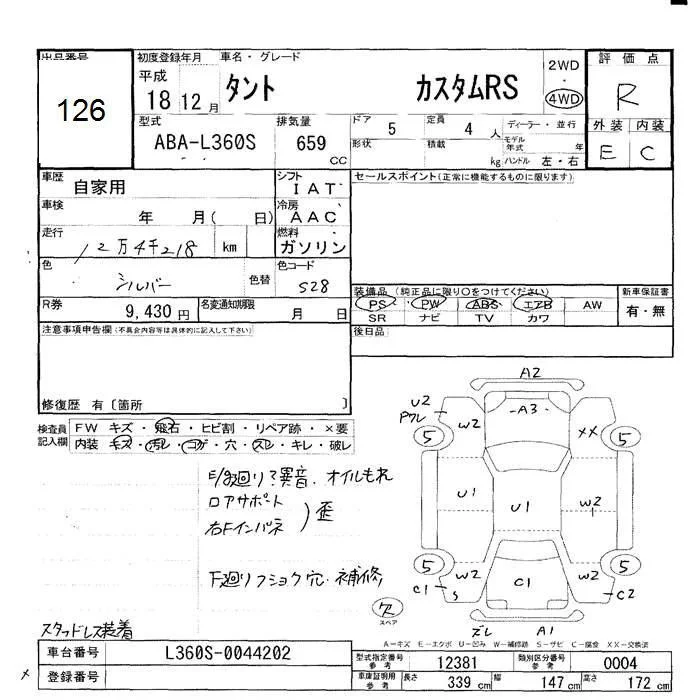 出品番号
126
初度登録年月
平成
18 12 月
車名・グレード
タント カスタムRS
2WD
・
4WD
評価点
R
型式
ABA-L360S
排気量
659
CC
ドア 5
定員 4 人
ディーラー・並行
形状
積載 kg
モデル年式 年
ハンドル 左・右
外装 内装
E C
車歴
自家用
シフト
IAT
セールスポイント(正常に機能するものに限ります)
車検
年 月( 日)
冷房
AAC
走行
12万4千218 km
燃料
ガソリン
色
シルバー
色替
色コード
S28
装備品(純正品に限り○をつけてください)
新車保証書
PS PW ABS エアB AW
有・無
SR ナビ TV カワ
R券
9,430円
名変通知期限
月 日
後日品
注意事項申告欄(不具合内容等は具体的に記入して下さい)
修復歴 有〔箇所 〕
検査員
記入欄
FW キズ・飛石・ヒビ割・リペア跡・×要
内装 キズ・汚レ・コゲ・穴・スレ・キレ・破レ
E/g廻り?異音.オイルもれ
ロアサポート
右Fインパネ
)歪
下廻りフショク穴.補修
スタッドレス装着
A2
U2
W2
A3
XX
5
5
U1
U1
W2
5
5
W2
C1
W2
C1
S
C2
欠
スペア
ズレ
A1
A=キズ E=エクボ U=凹み W=補修跡 S=サビ C=腐食 XX=交換済
車台番号
L360S-0044202
登録番号
型式指定番号
参考
12381
類別区分番号
参考
0004
車庫証明用
参考
長さ 339 cm
幅 147 cm
高さ 172 cm
×